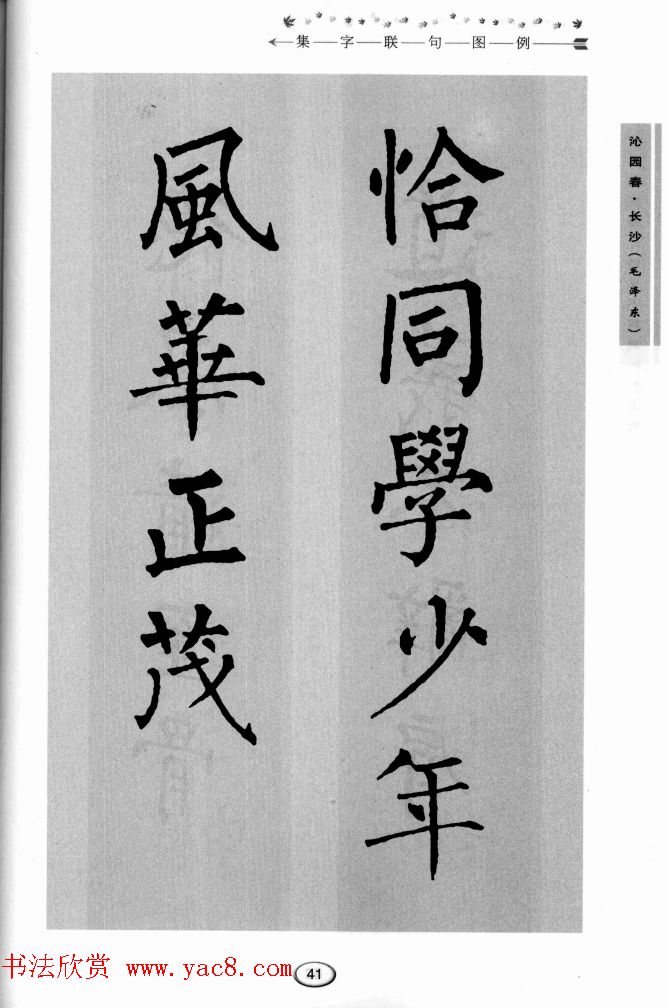 集字联句图例
沁园春·长沙(毛泽东)
恰同學少年
風華正茂
书法欣赏 www.yac8.com
41